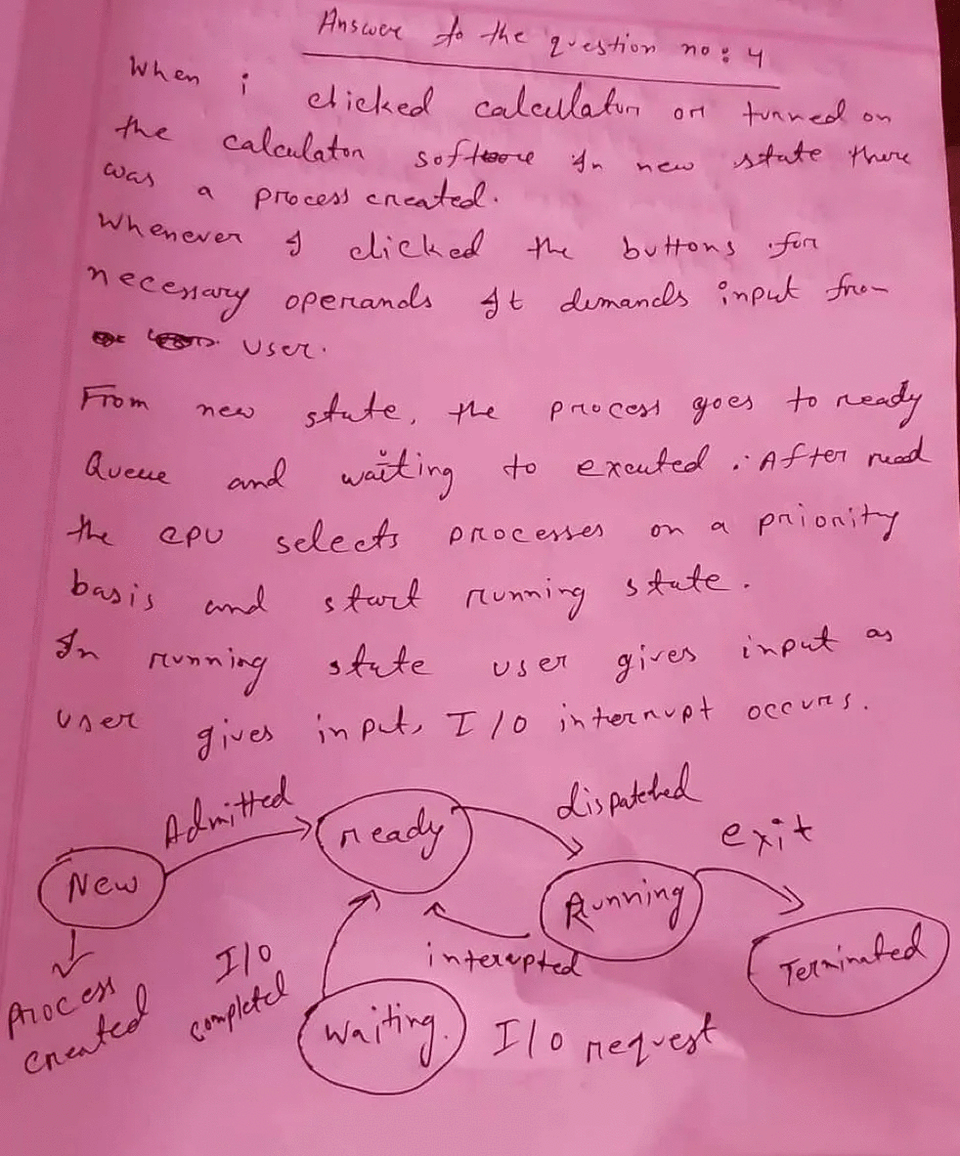 Answer to the question no: 4
When i clicked calculator or turned on
the calculator software In new state there
was a process created.
Whenever I clicked the buttons for
necessary operands It demands input from
user.
From new state, the process goes to ready
Queue and waiting to excuted. After read
the CPU selects processes on a priority
basis and start running state.
In running state user gives input as
user gives input, I/O interrupt occurs.
Admitted
ready
dispatched
exit
New
Running
Terminated
interupted
I/O
completed
Process
created
Waiting.
I/O request